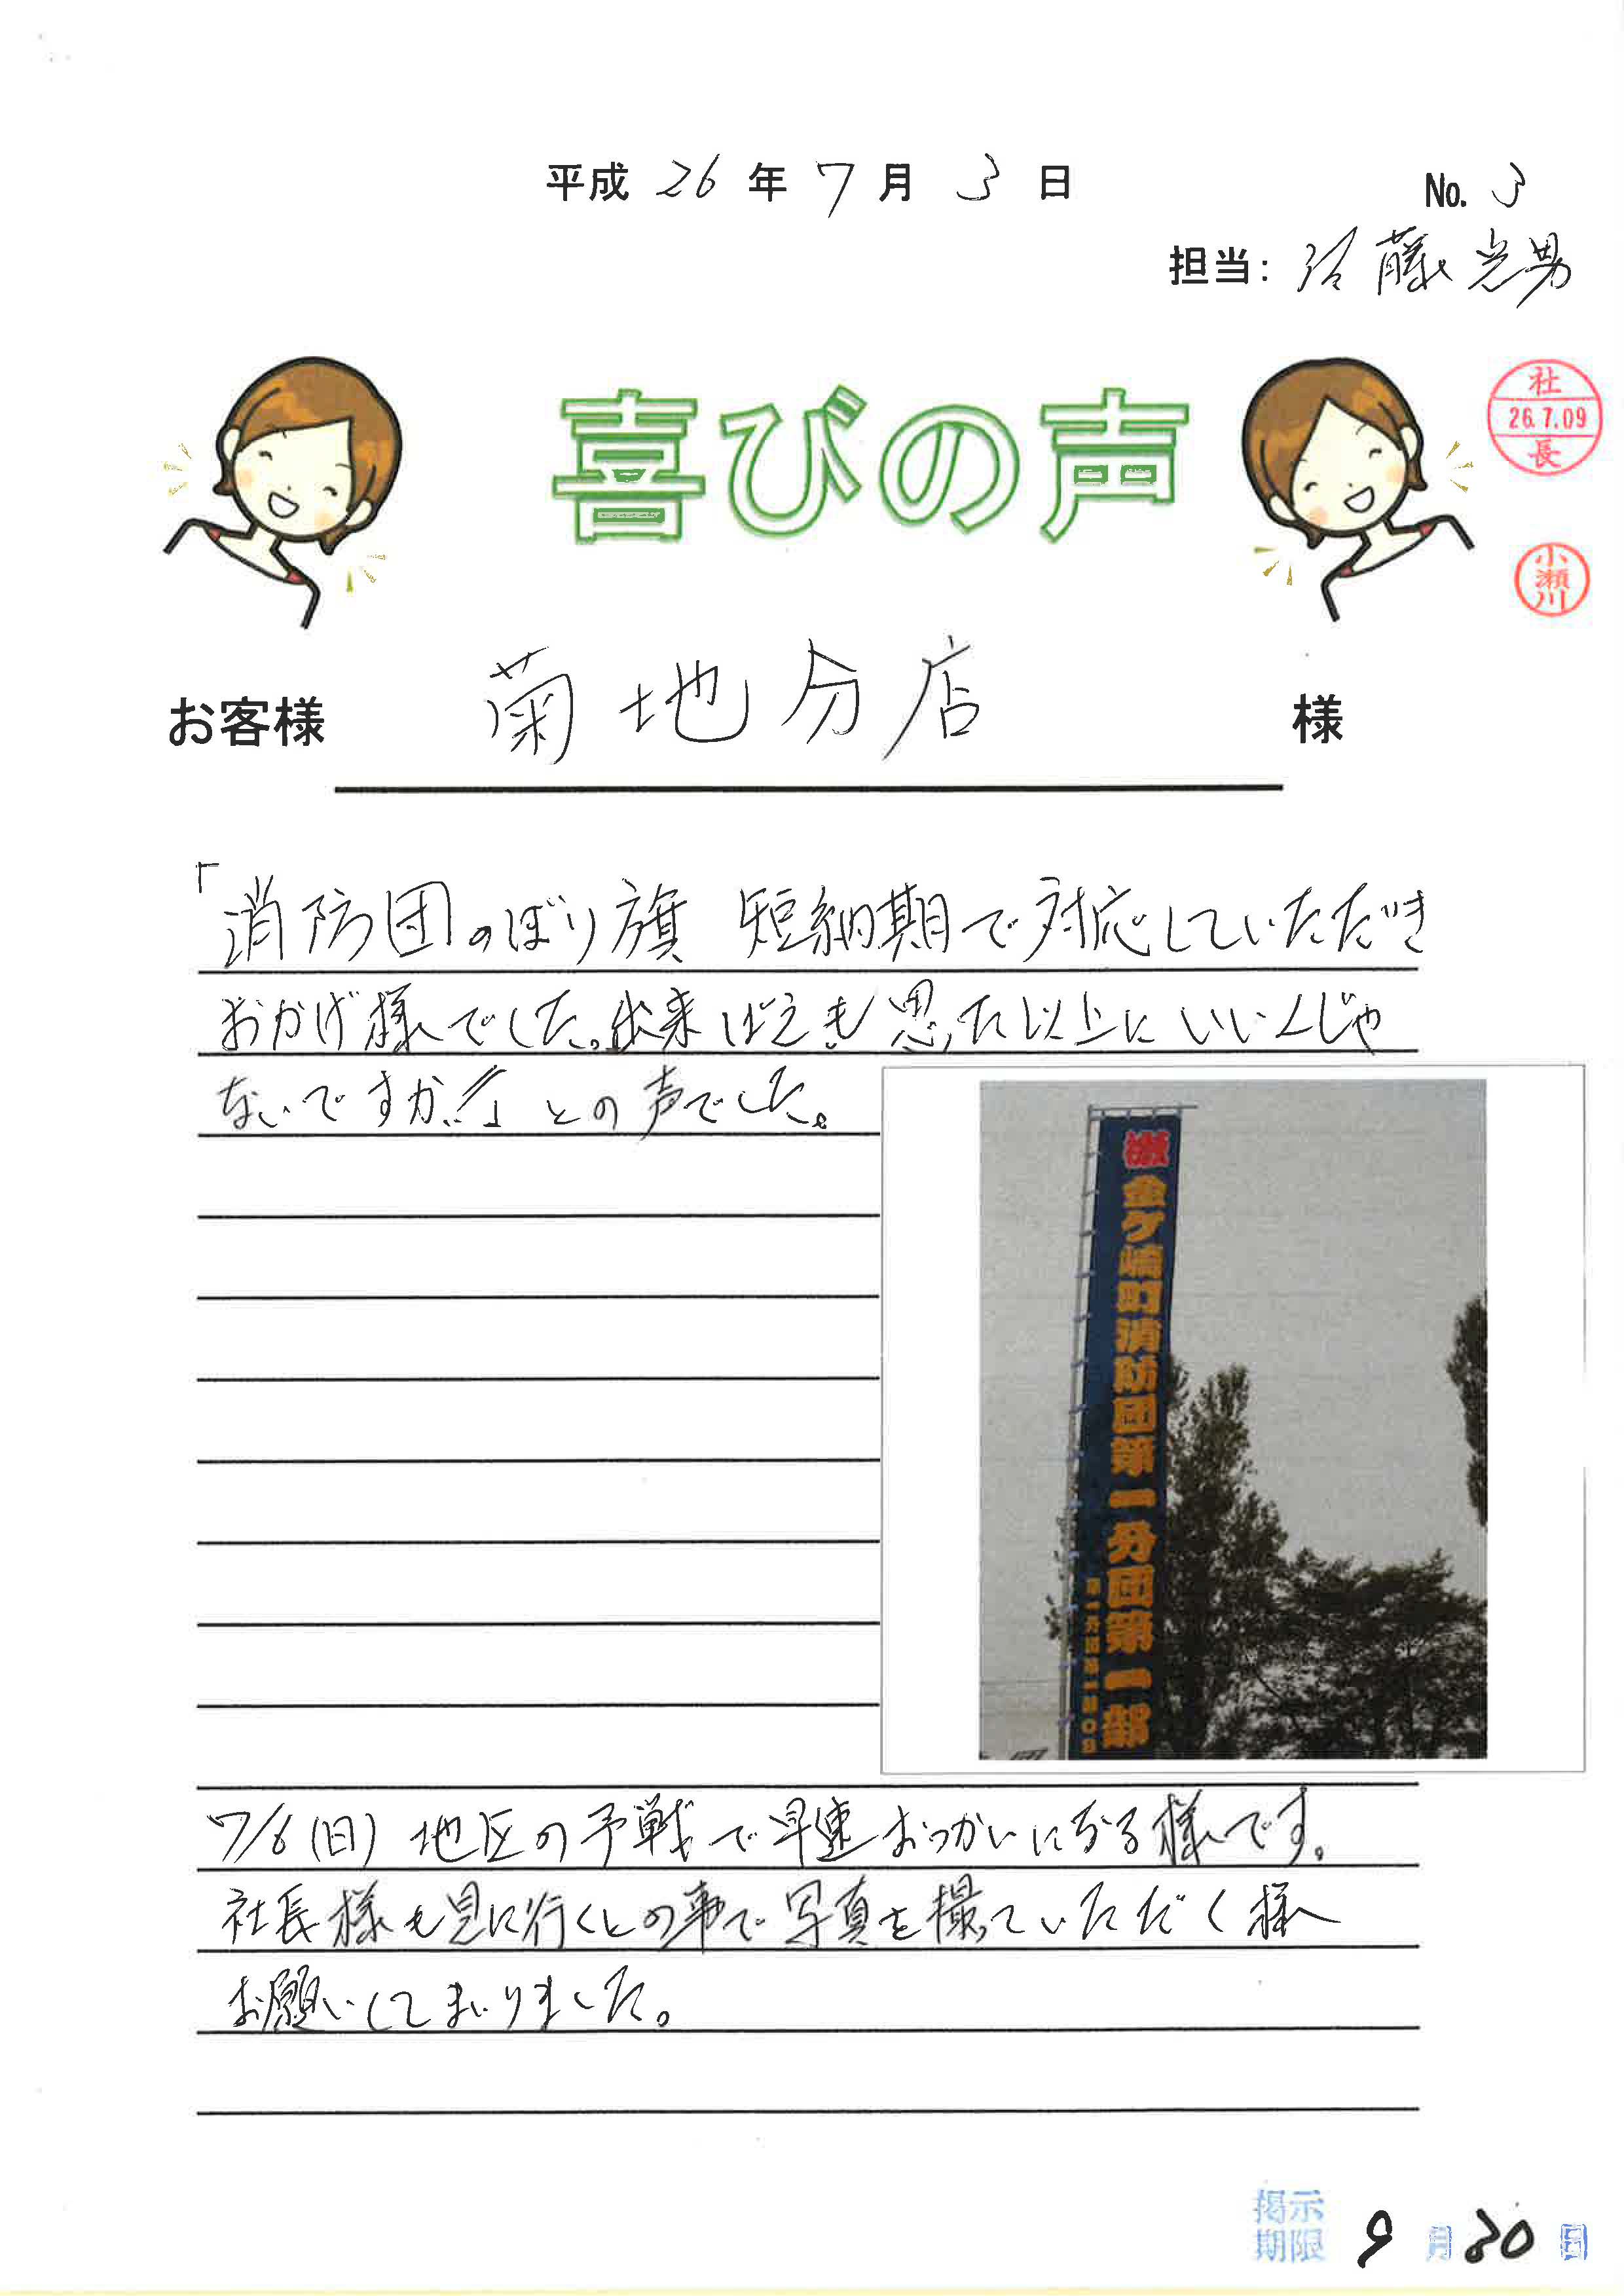 平成 26 年 7 月 3 日
No. 3
担当: 佐藤光男
喜びの声
社
26.7.09
長
小瀬川
お客様 菊地分店 様
「消防団のぼり旗 短納期で対応していただき
おかげ様でした。出来ばえも思った以上にいいんじゃ
ないですか!!」との声でした。
金ケ崎町消防団第一分団第一部
7/6(日) 地区の予戦で早速おつかいになる様です。
社長様も見に行くとの事で写真を撮っていただく様
お願いしてまいりました。
掲示
期限 9月30日